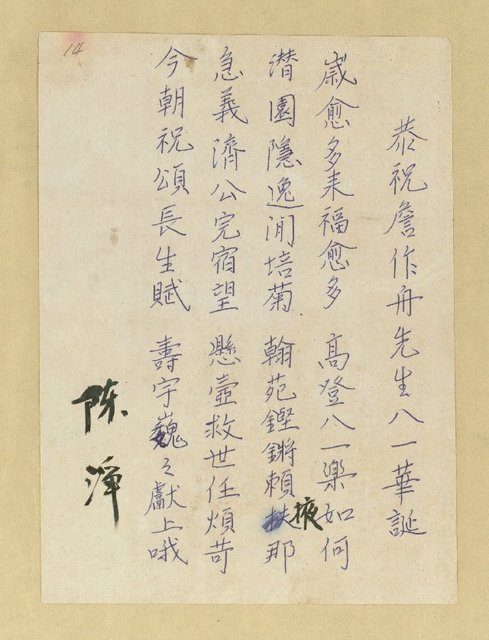 14
恭祝詹作舟先生八一華誕
歲愈多来福愈多 高登八一樂如何
潜園隱逸閒培菊 翰苑鏗鏘賴扶掖那
急義濟公完宿望 懸壺救世任煩苛
今朝祝頌長生賦 壽宇巍々獻上哦
陈